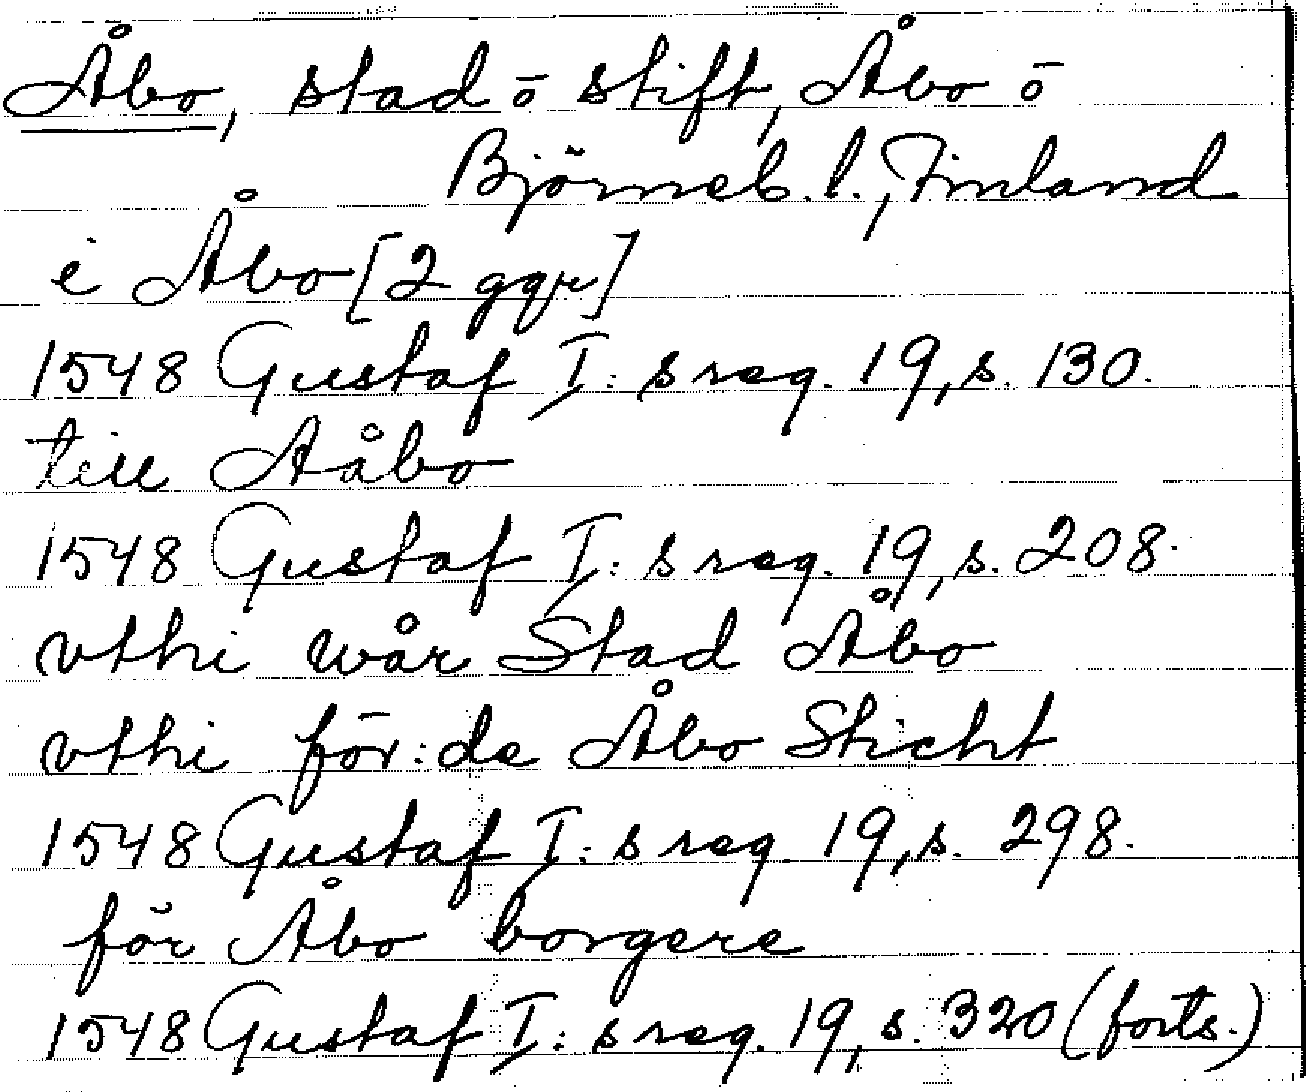 Åbo, stad o stift, Åbo o
Björneb. l., Finland
i Åbo [2 ggr]
1548 Gustaf I:s reg. 19, s. 130.
till Aåbo
1548 Gustaf I:s reg. 19, s. 208.
vthi wår Stad Åbo
vthi för:de Åbo Sticht
1548 Gustaf I:s reg. 19, s. 298.
för Åbo borgere
1548 Gustaf I:s reg. 19, s. 320 (forts.)